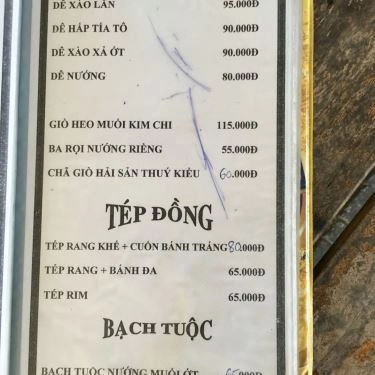 DÊ XÀO LĂN 95.000Đ
DÊ HẤP TÍA TÔ 90.000Đ
DÊ XÀO XẢ ỚT 90.000Đ
DÊ NƯỚNG 80.000Đ
GIÒ HEO MUỐI KIM CHI 115.000Đ
BA RỌI NƯỚNG RIÊNG 55.000Đ
CHẢ GIÒ HẢI SẢN THUÝ KIỀU 60.000Đ
TÉP ĐỒNG
TÉP RANG KHẾ + CUỐN BÁNH TRÁNG 80.000Đ
TÉP RANG + BÁNH ĐA 65.000Đ
TÉP RIM 65.000Đ
BẠCH TUỘC
BẠCH TUỘC NƯỚNG MUỐI ỚT 65.000Đ